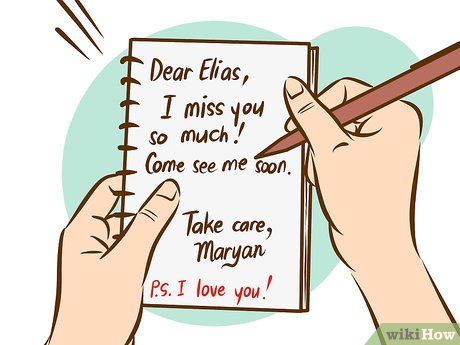 Dear Elias,
I miss you
so much!
Come see me soon.
Take care,
Maryan
P.s. I love you!
wikiHow